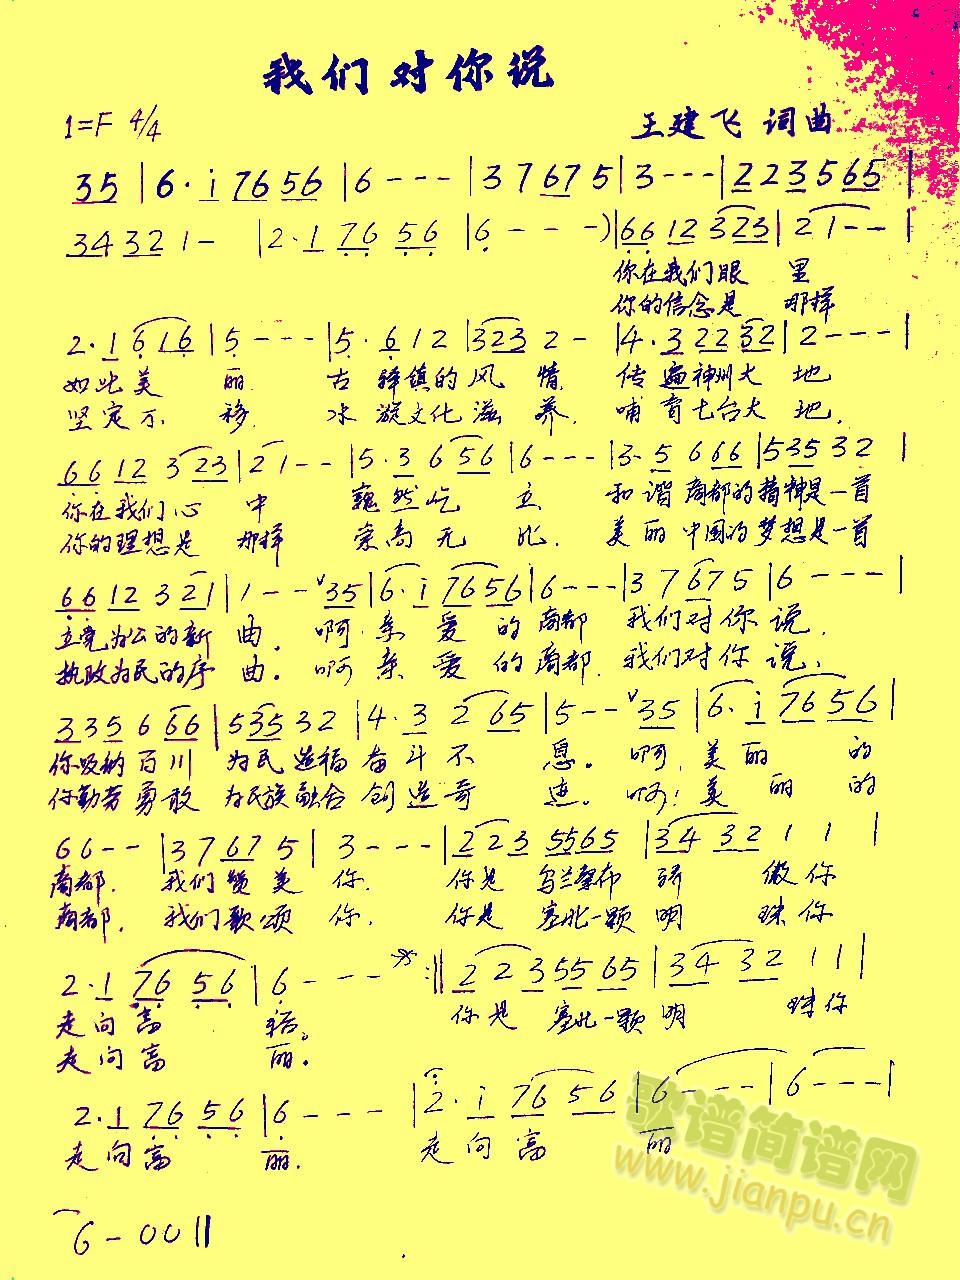 我们对你说
1=F 4/4
王建飞 词曲
35 | 6·i 7656 | 6--- | 37675 | 3--- | 223565 |
34321- | 2·1 7656 | 6---) | 6612323 | 21-- |
你在我们眼 里
你的信念是 那样
2·1616 | 5--- | 5·612 | 3232- | 4·32232 | 2--- |
如此美 丽 古 驿镇的风 情 传遍神州大 地
坚定不 移 冰 文化滋 养 哺育七台大 地
6612323 | 21-- | 5·3656 | 6--- | 3·5666 | 53532 |
你在我们心 中 巍然屹 立 和谐商都的精神是一首
你的理想是 那样 崇高无 比 美丽中国的梦想是一首
6612321 | 1-- 35 | 6·i7656 | 6--- | 37675 | 6--- |
立党为公的新 曲。 啊 亲 爱 的 商都 我们对你 说
执政为民的序 曲。 啊 亲 爱 的 商都 我们对你 说
335666 | 53532 | 4·3265 | 5-- 35 | 6·i7656 |
你吸纳百川 为民造福奋斗不 息。 啊 美 丽 的
你勤劳勇敢 为民族融合创造奇 迹。 啊! 美 丽 的
66-- | 37675 | 3--- | 2235565 | 343211 |
商都 我们赞美 你 你是 乌兰察布 骄 傲你
商都 我们歌颂 你 你是 塞北一颗明 珠你
2·17656 | 6--- :‖ 2235565 | 343211 |
走向富 裕。 你是 塞北一颗明 珠你
走向富 丽。
2·17656 | 6--- | 2·i7656 | 6--- | 6--- |
走向富 丽 走向富 丽
6-00‖
歌谱简谱网
www.jianpu.cn